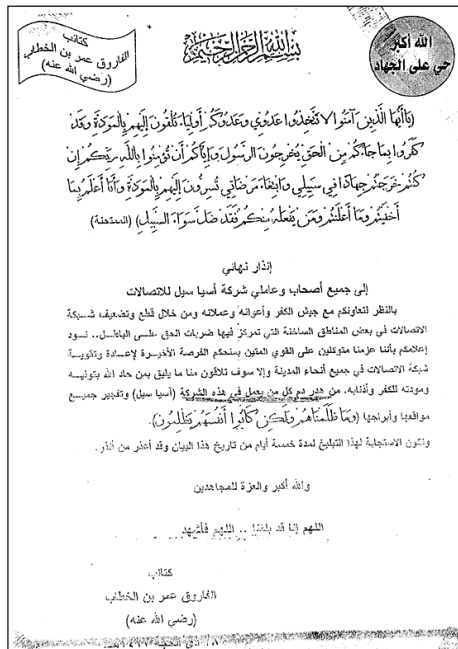 كتائب
الفاروق عمر بن الخطاب
(رضي الله عنه)
بسم الله الرحمن الرحيم
الله أكبر
حي على الجهاد
(يا أيها الذين آمنوا لا تتخذوا عدوي وعدوكم أولياء تلقون إليهم بالمودة وقد
كفروا بما جاءكم من الحق يخرجون الرسول وإياكم أن تؤمنوا بالله ربكم إن
كنتم خرجتم جهادا في سبيلي وابتغاء مرضاتي تسرون إليهم بالمودة وأنا أعلم بما
أخفيتم وما أعلنتم ومن يفعله منكم فقد ضل سواء السبيل) (الممتحنة)
إنذار نهائي
إلى جميع أصحاب وعاملي شركة أسيا سيل للاتصالات
بالنظر لتعاونكم مع جيش الكفر وأعوانه وعملائه ومن خلال قطع وتضعيف شبكة
الاتصالات في بعض المناطق الساخنة التي تمركز فيها ضربات الحق على الباطل.. نود
إعلامكم بأننا عزمنا متوكلين على القوي المتين بمنحكم الفرصة الأخيرة لإعادة وتقوية
شبكة الاتصالات في جميع أنحاء المدينة وإلا سوف تلاقون منا ما يليق بمن حاد الله بتوليه
ومودته للكفر وأذنابه. من هدر دم كل من يعمل في هذه الشركة (أسيا سيل) وتفجير جميع
مواقعها وأبراجها (وما ظلمناهم ولكن كانوا أنفسهم يظلمون).
وتكون الاستجابة لهذا التبليغ لمدة خمسة أيام من تاريخ هذا البيان وقد أعذر من أنذر.
والله أكبر والعزة للمجاهدين
اللهم إنا قد بلغنا .. اللهم فاشهد
كتائب
الفاروق عمر بن الخطاب
(رضي الله عنه)